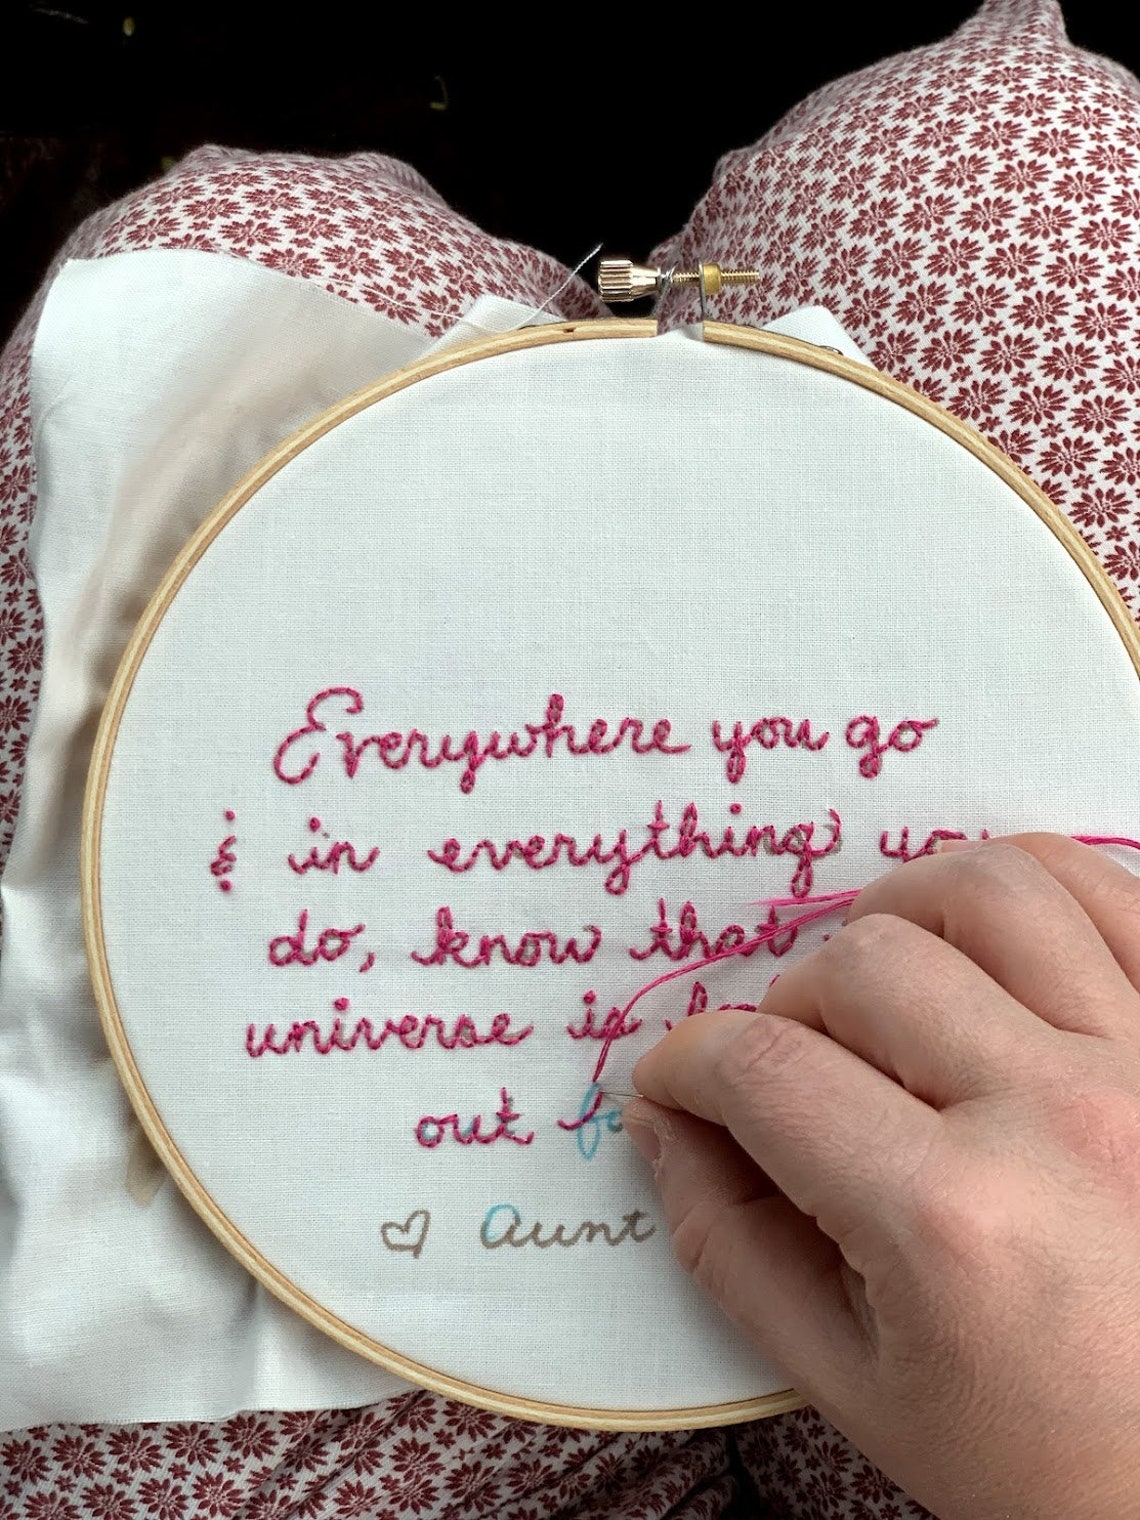 Everywhere you go
& in everything you
do, know that
universe is
out
♡ Aunt